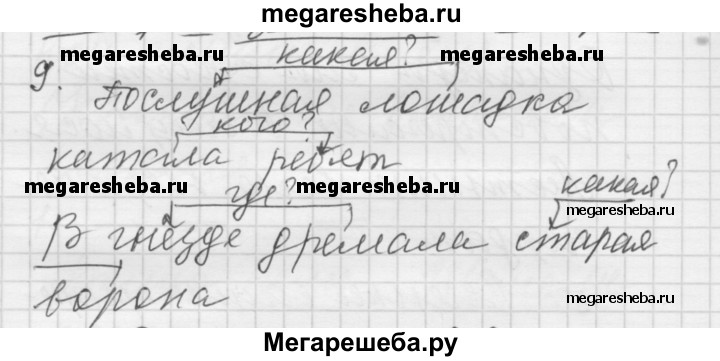 megaresheba.ru
megaresheba.ru какая? megaresheba.ru
9.
Послушная лошадка
кого?
катала ребят
megaresheba.ru где? какая?
megaresheba.ru
В гнезде дремала старая
ворона
megaresheba.ru
Мегарешеба.ру